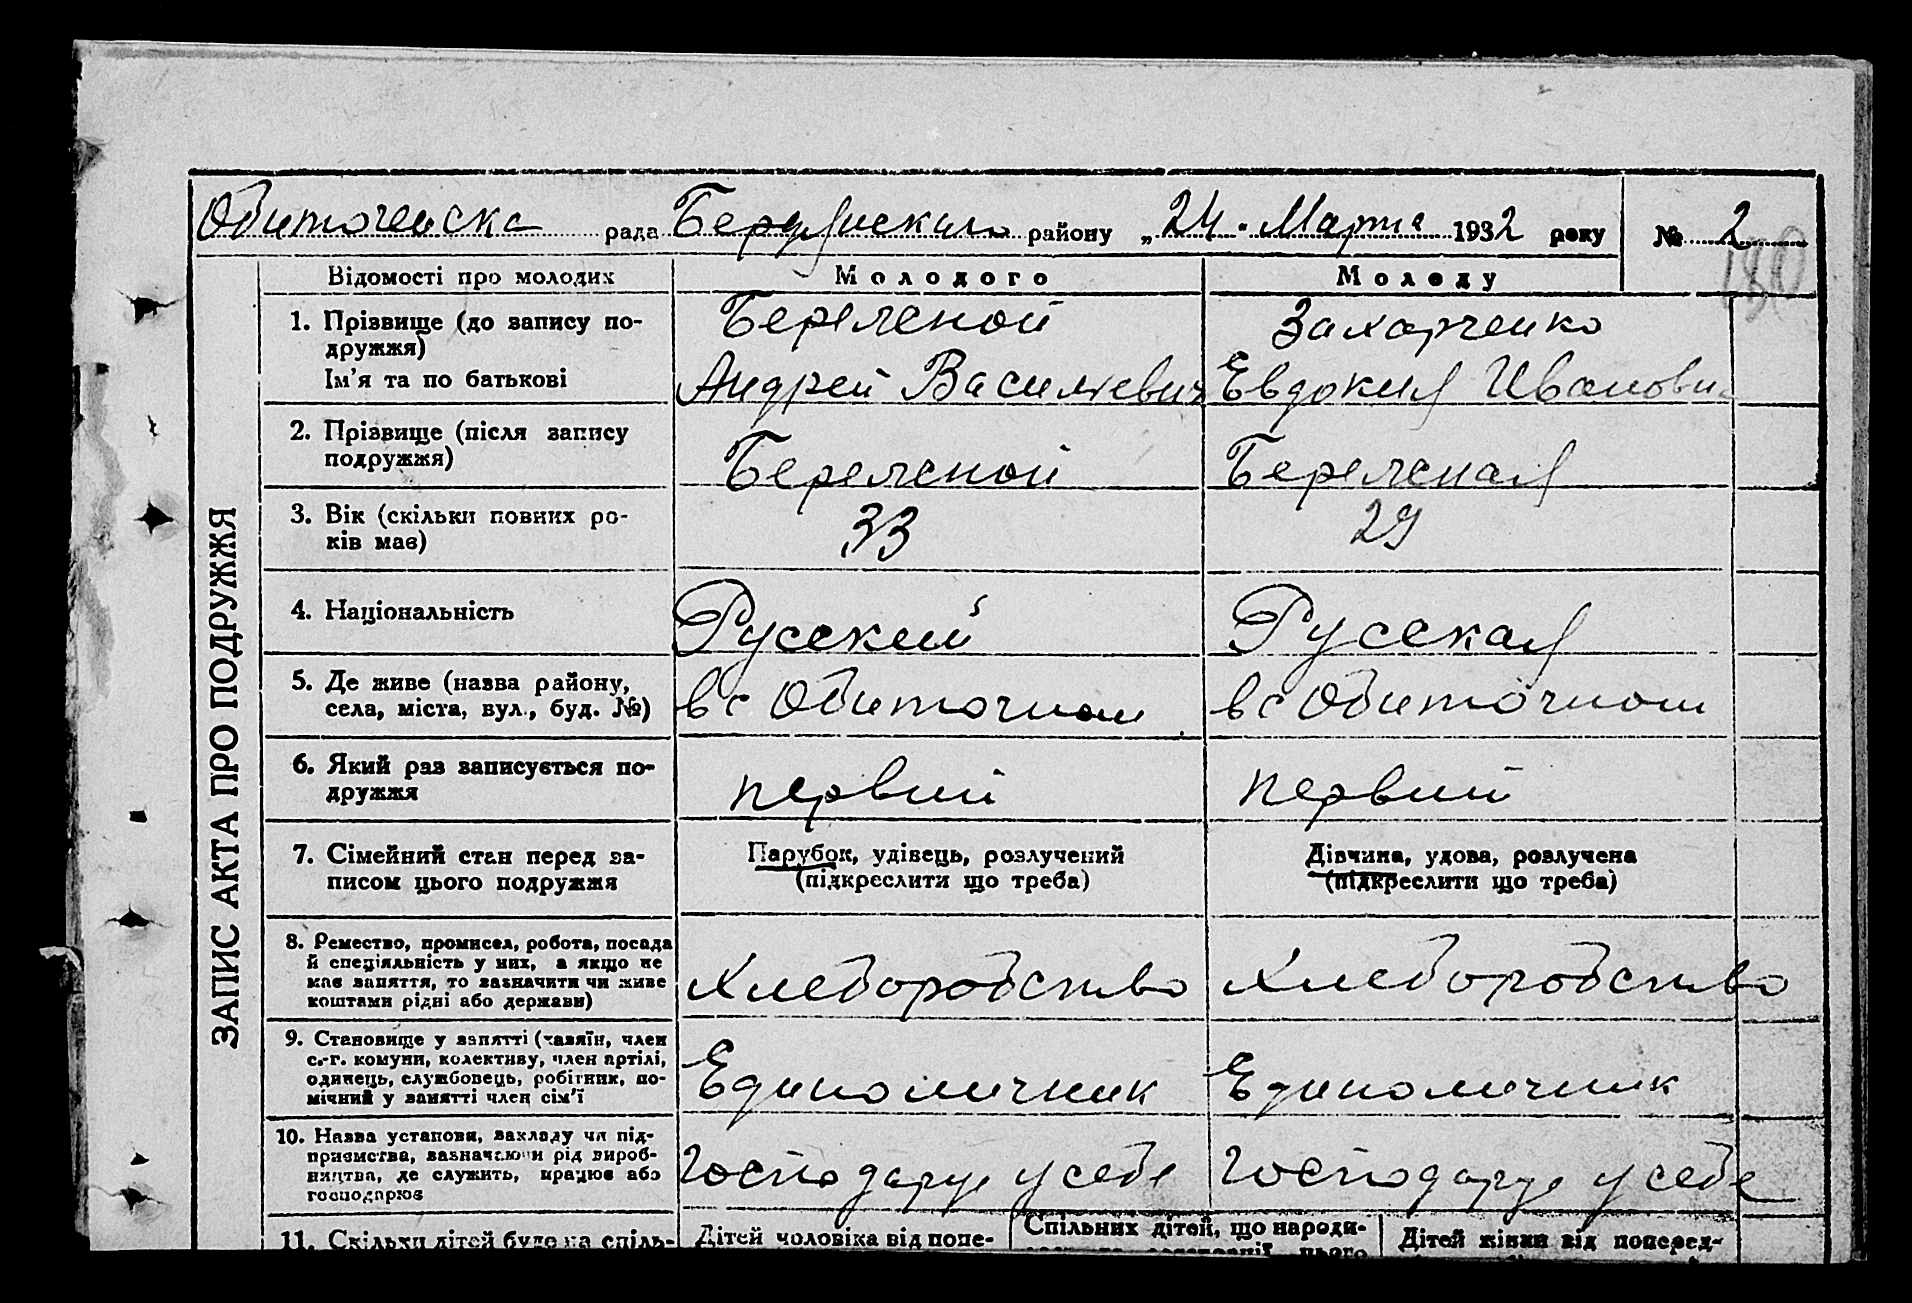 Обиточенска рада Бердянскаго району „24" Марта 1932 року № 2
130
ЗАПИС АКТА ПРО ПОДРУЖЖЯ
Відомості про молодих Молодого Молоду
1. Прізвище (до запису по- Береченой Захарченко
дружжя)
Ім'я та по батькові Андрей Василиевич Евдокия Ивановн
2. Прізвище (після запису
подружжя) Береченой Береченая
3. Вік (скільки повних ро- 33 29
ків має)
4. Національність Русский Русская
5. Де живе (назва району,
села, міста, вул., буд. №) в с Обиточном в с Обиточном
6. Який раз записується по-
дружжя первий первий
7. Сімейний стан перед за- Парубок, удівець, розлучений Дівчина, удова, розлучена
писом цього подружжя (підкреслити що треба) (підкреслити що треба)
8. Ремество, промисел, робота, посада
й спеціяльність у них, а якщо не
має заняття, то зазначити чи живе Хлебородство Хлебородство
коштами рідні або держави)
9. Становище у занятті (хазяїн, член
с.-г. комуни, колективу, член артілі,
одинець, службовець, робітник, по- Единоличник Единоличник
мічний у занятті член сім'ї
10. Назва установи, закладу чи під-
приємства, зазначаючи рід вироб-
ництва, де служить, працює або Господарує у себе Господарує у себе
господарює
11. Скільки дітей було на спіль- Дітей чоловіка від попе- Спільних дітей, що народи- Дітей жінки від поперед-